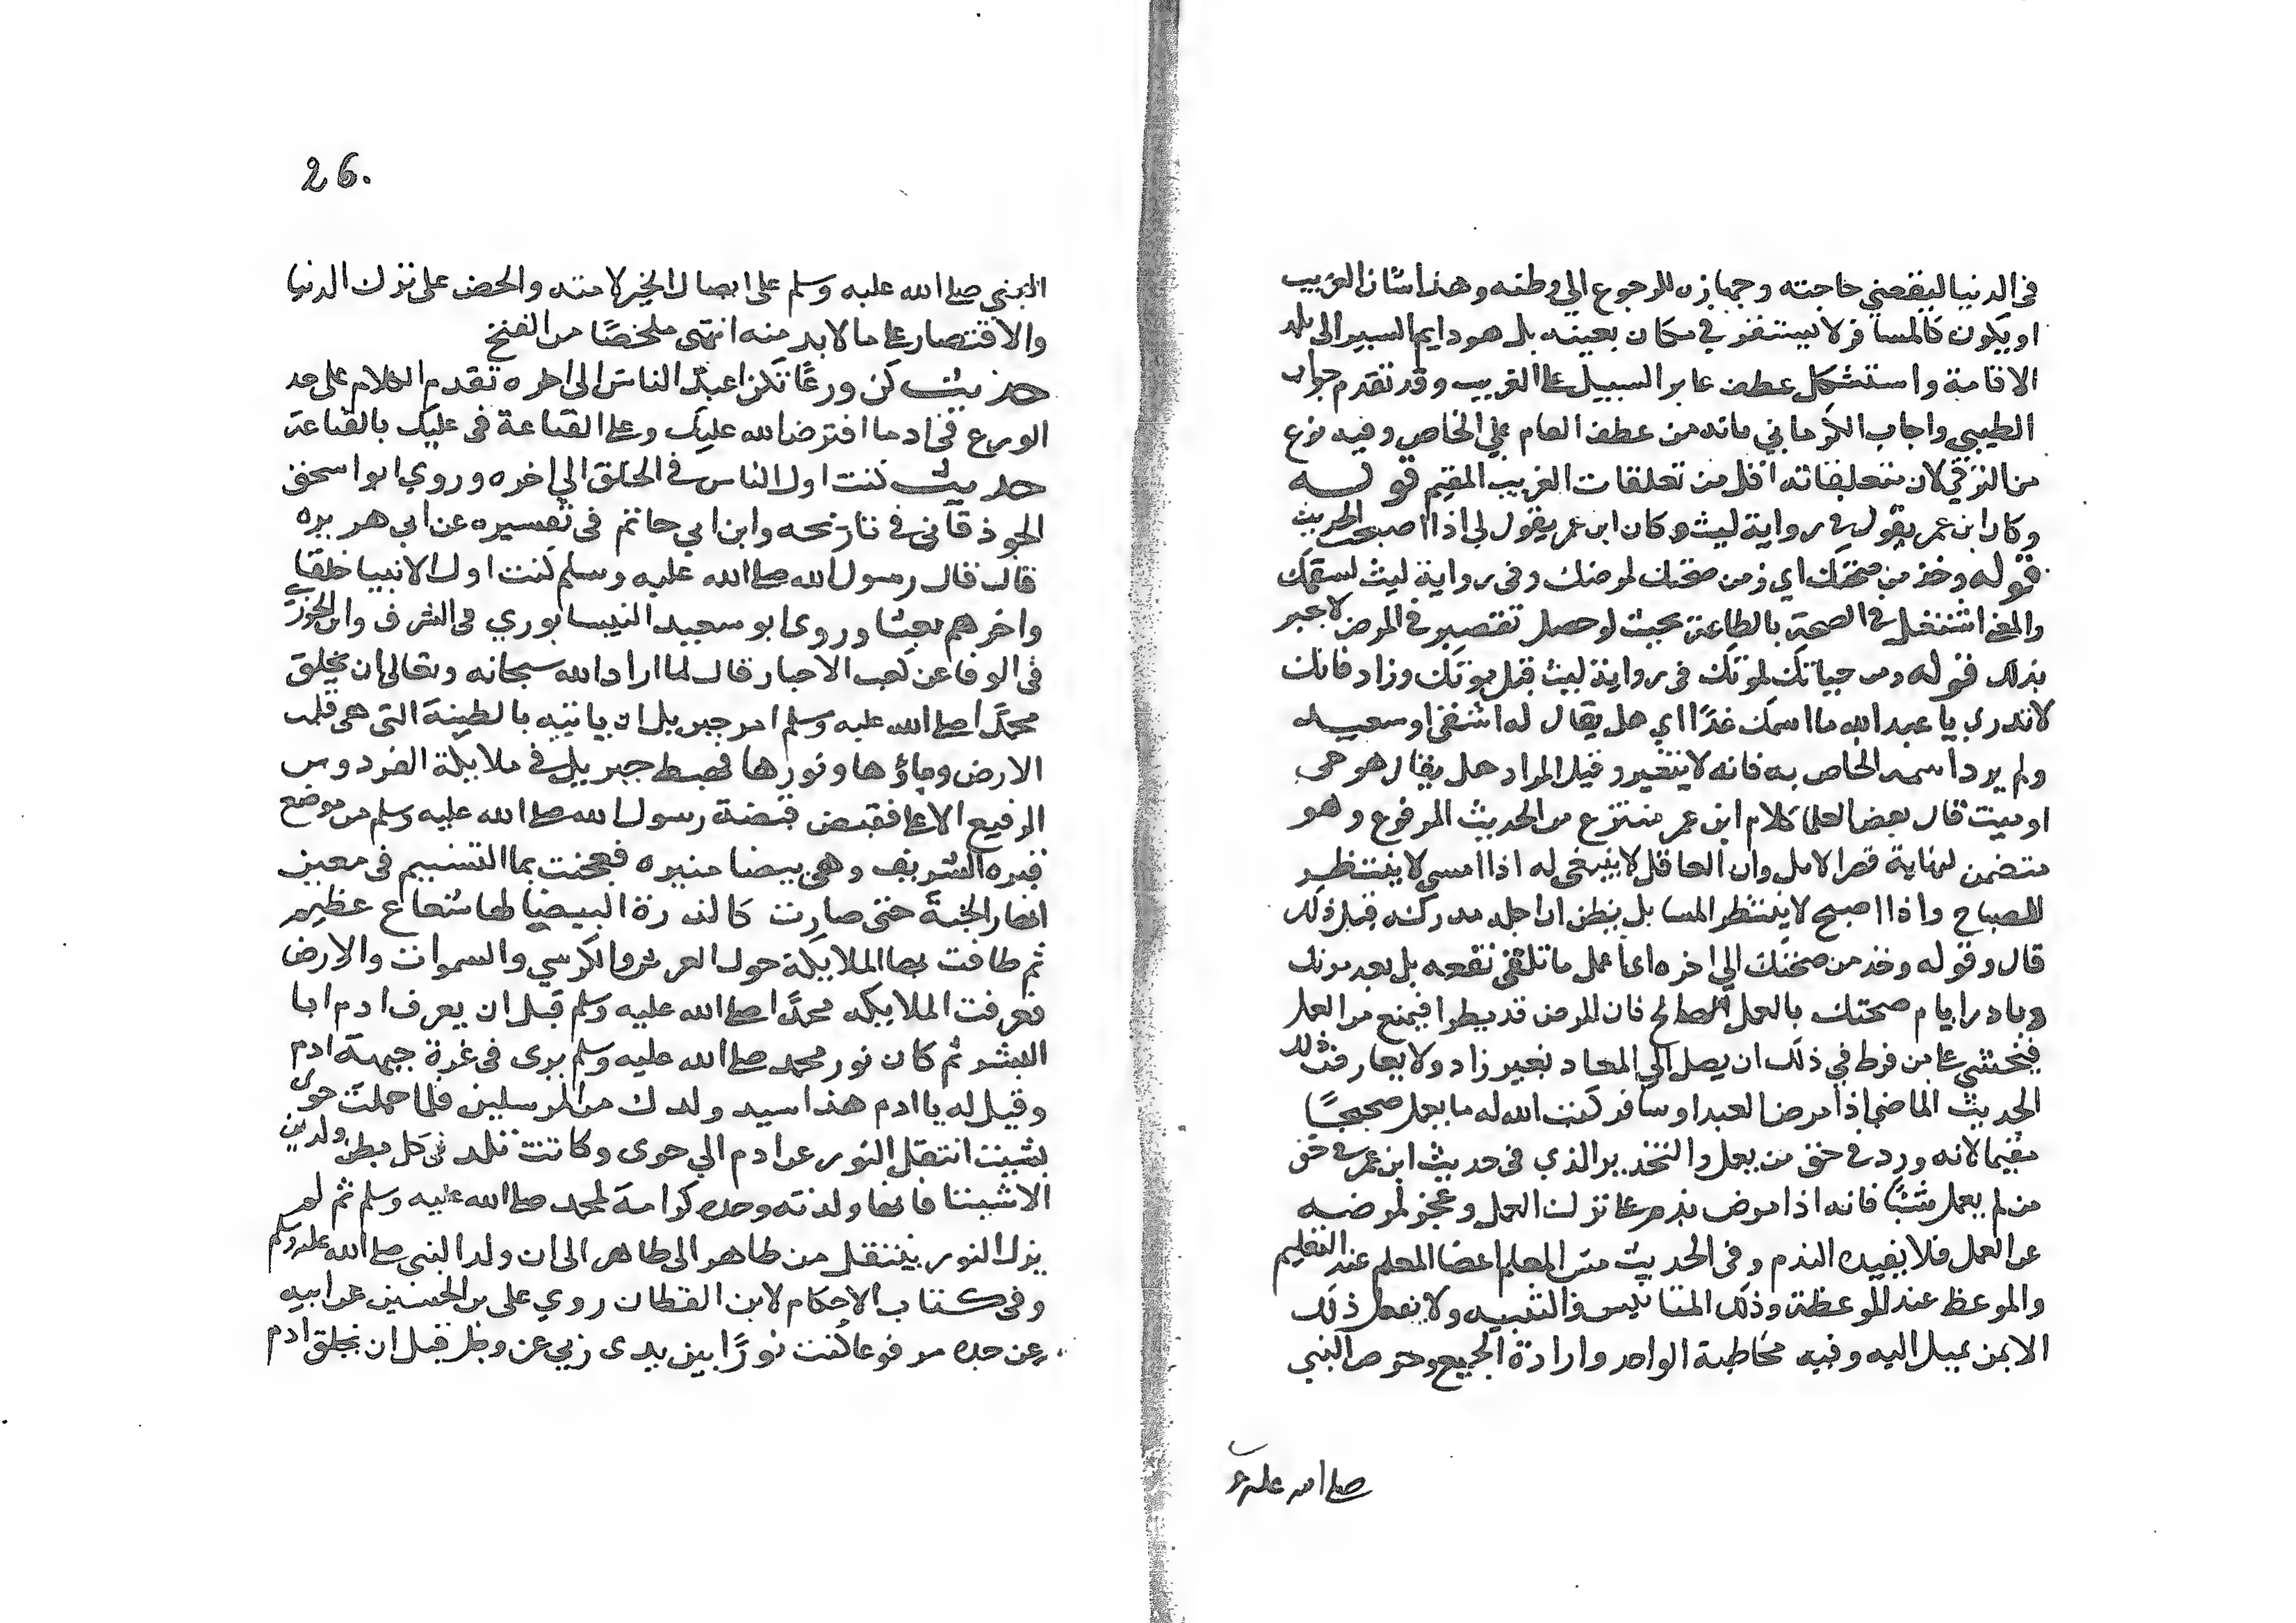 في الدنيا ليقضي حاجته وجهازه للرجوع الي وطنه وهذا شان الغريب
او يكون كالمسافر لا يستقر في مكان بعينه بل هو دايم السير الى بلد
الاقامة واستشكل عطف عابر السبيل على الغريب وقد تقدم جواب
الطيبي واجاب الكرماني بانه من عطف العام علي الخاص وفيه نوع
من الترقي لان تعلقاته اقل من تعلقات الغريب المقيم قوله
وكان ابن عمر يقول في رواية ليث وكان ابن عمر يقول لي اذا اصبحت الحديث
قوله وخذ من صحتك اي زمن صحتك لمرضك وفي رواية ليث لسقمك
والمعنى اشتغل في الصحة بالطاعة بحيث لو حصل تقصير في المرض لاجبر
بذلك قوله ومن حياتك لموتك في رواية ليث قبل موتك وزاد فانك
لا تدري يا عبد الله ما اسمك غدًا اي هل يقال له اشقى او سعيد
ولم يرد اسمه الخاص به فانه لا يتغير وقيل المراد هل يقال هو حي
او ميت قال بعض العلما كلام ابن عمر منتزع من الحديث المرفوع وهو
متضمن لنهاية قصر الامل وان العاقل لا ينبغي له اذا امسى لا ينتظر
الصباح واذا اصبح لا ينتظر المسا بل يظن ان اجله مدركه قبل ذلك
قال وقوله وخذ من صحتك الي اخره اي اعمل ما تلقى نفعه بل بعد موتك
وبادر ايام صحتك بالعمل الصالح فان المرض قد يطرا فيمنع من العمل
فيخشى على من فرط في ذلك ان يصل الي المعاد بغير زاد ولا يعارض ذلك
الحديث الماضي اذا مرض العبد او سافر كتب الله له ما يعمل صحيحًا
مقيما لانه ورد في حق من يعمل والتحذير الذي في حديث ابن عمر في حق
من لم يعمل شيئًا فانه اذا مرض ندم على ترك العمل وعجز لمرضه
عن العمل فلا يفيده الندم وفي الحديث مس المعلم اعضا المعلم عند التعليم
والموعظ عند الموعظة وذلك المتانيس والتنبيه ولا يفعل ذلك
الا بمن يميل اليه وفيه مخاطبة الواحد وارادة الجميع وحرص النبي
صلى الله عليه و
26.
النبي صلى الله عليه وسلم على ايصال الخير لامته والحض على ترك الدنيا
والاقتصار على ما لابد منه انتهى ملخصًا من الفتح
حديث كن ورعًا تكن اعبد الناس الى اخره تقدم الكلام على حد
الورع في اد ما افترض الله عليك وعلى القناعة في عليك بالقناعة
حديث كنت اول الناس في الخلق الي اخره وروي ابو اسحق
الجوذقاني في تاريخه وابن ابي حاتم في تفسيره عن ابي هريره
قال قال رسول الله صلى الله عليه وسلم كنت اول الانبيا خلقا
واخرهم بعثا وروى ابو سعيد النيسابوري في الشرف وابن الجوزي
في الوفا عن كعب الاحبار قال لما اراد الله سبحانه وتعالى ان يخلق
محمدًا صلى الله عليه وسلم امر جبريل ان ياتيه بالطينة التي هي قلب
الارض وماؤها ونورها فهبط جبريل في ملايكة الفردوس
الرفيع الاعلى فقبض قبضة رسول الله صلى الله عليه وسلم من موضع
قبره الشريف وهي بيضا منيره فعجنت بما التسنيم في معين
انهار الجنة حتى صارت كالدرة البيضا لها شعاع عظيم
ثم طافت بها الملايكة حول العرش والكرسي والسموات والارض
فعرفت الملايكه محمدًا صلى الله عليه وسلم قبل ان يعرف ادم ابا
البشر ثم كان نور محمد صلى الله عليه وسلم يرى في غرة جبهة ادم
وقيل له يا ادم هذا سيد ولدك من المرسلين فلما حملت حوى
بشيت انتقل النور عن ادم الي حوى وكانت تلد في كل بطن ولدين
الا شيثا فانها ولدته وحده كرامة لمحمد صلى الله عليه وسلم ثم لم
يزل النور ينتقل من طاهر الى طاهر الى ان ولد النبي صلى الله عليه وسلم
وفي كتاب الاحكام لابن القطان روي على بن الحسين عن ابيه
عن جده مرفوعا كنت نورًا بين يدى ربي عز وجل قبل ان يخلق ادم